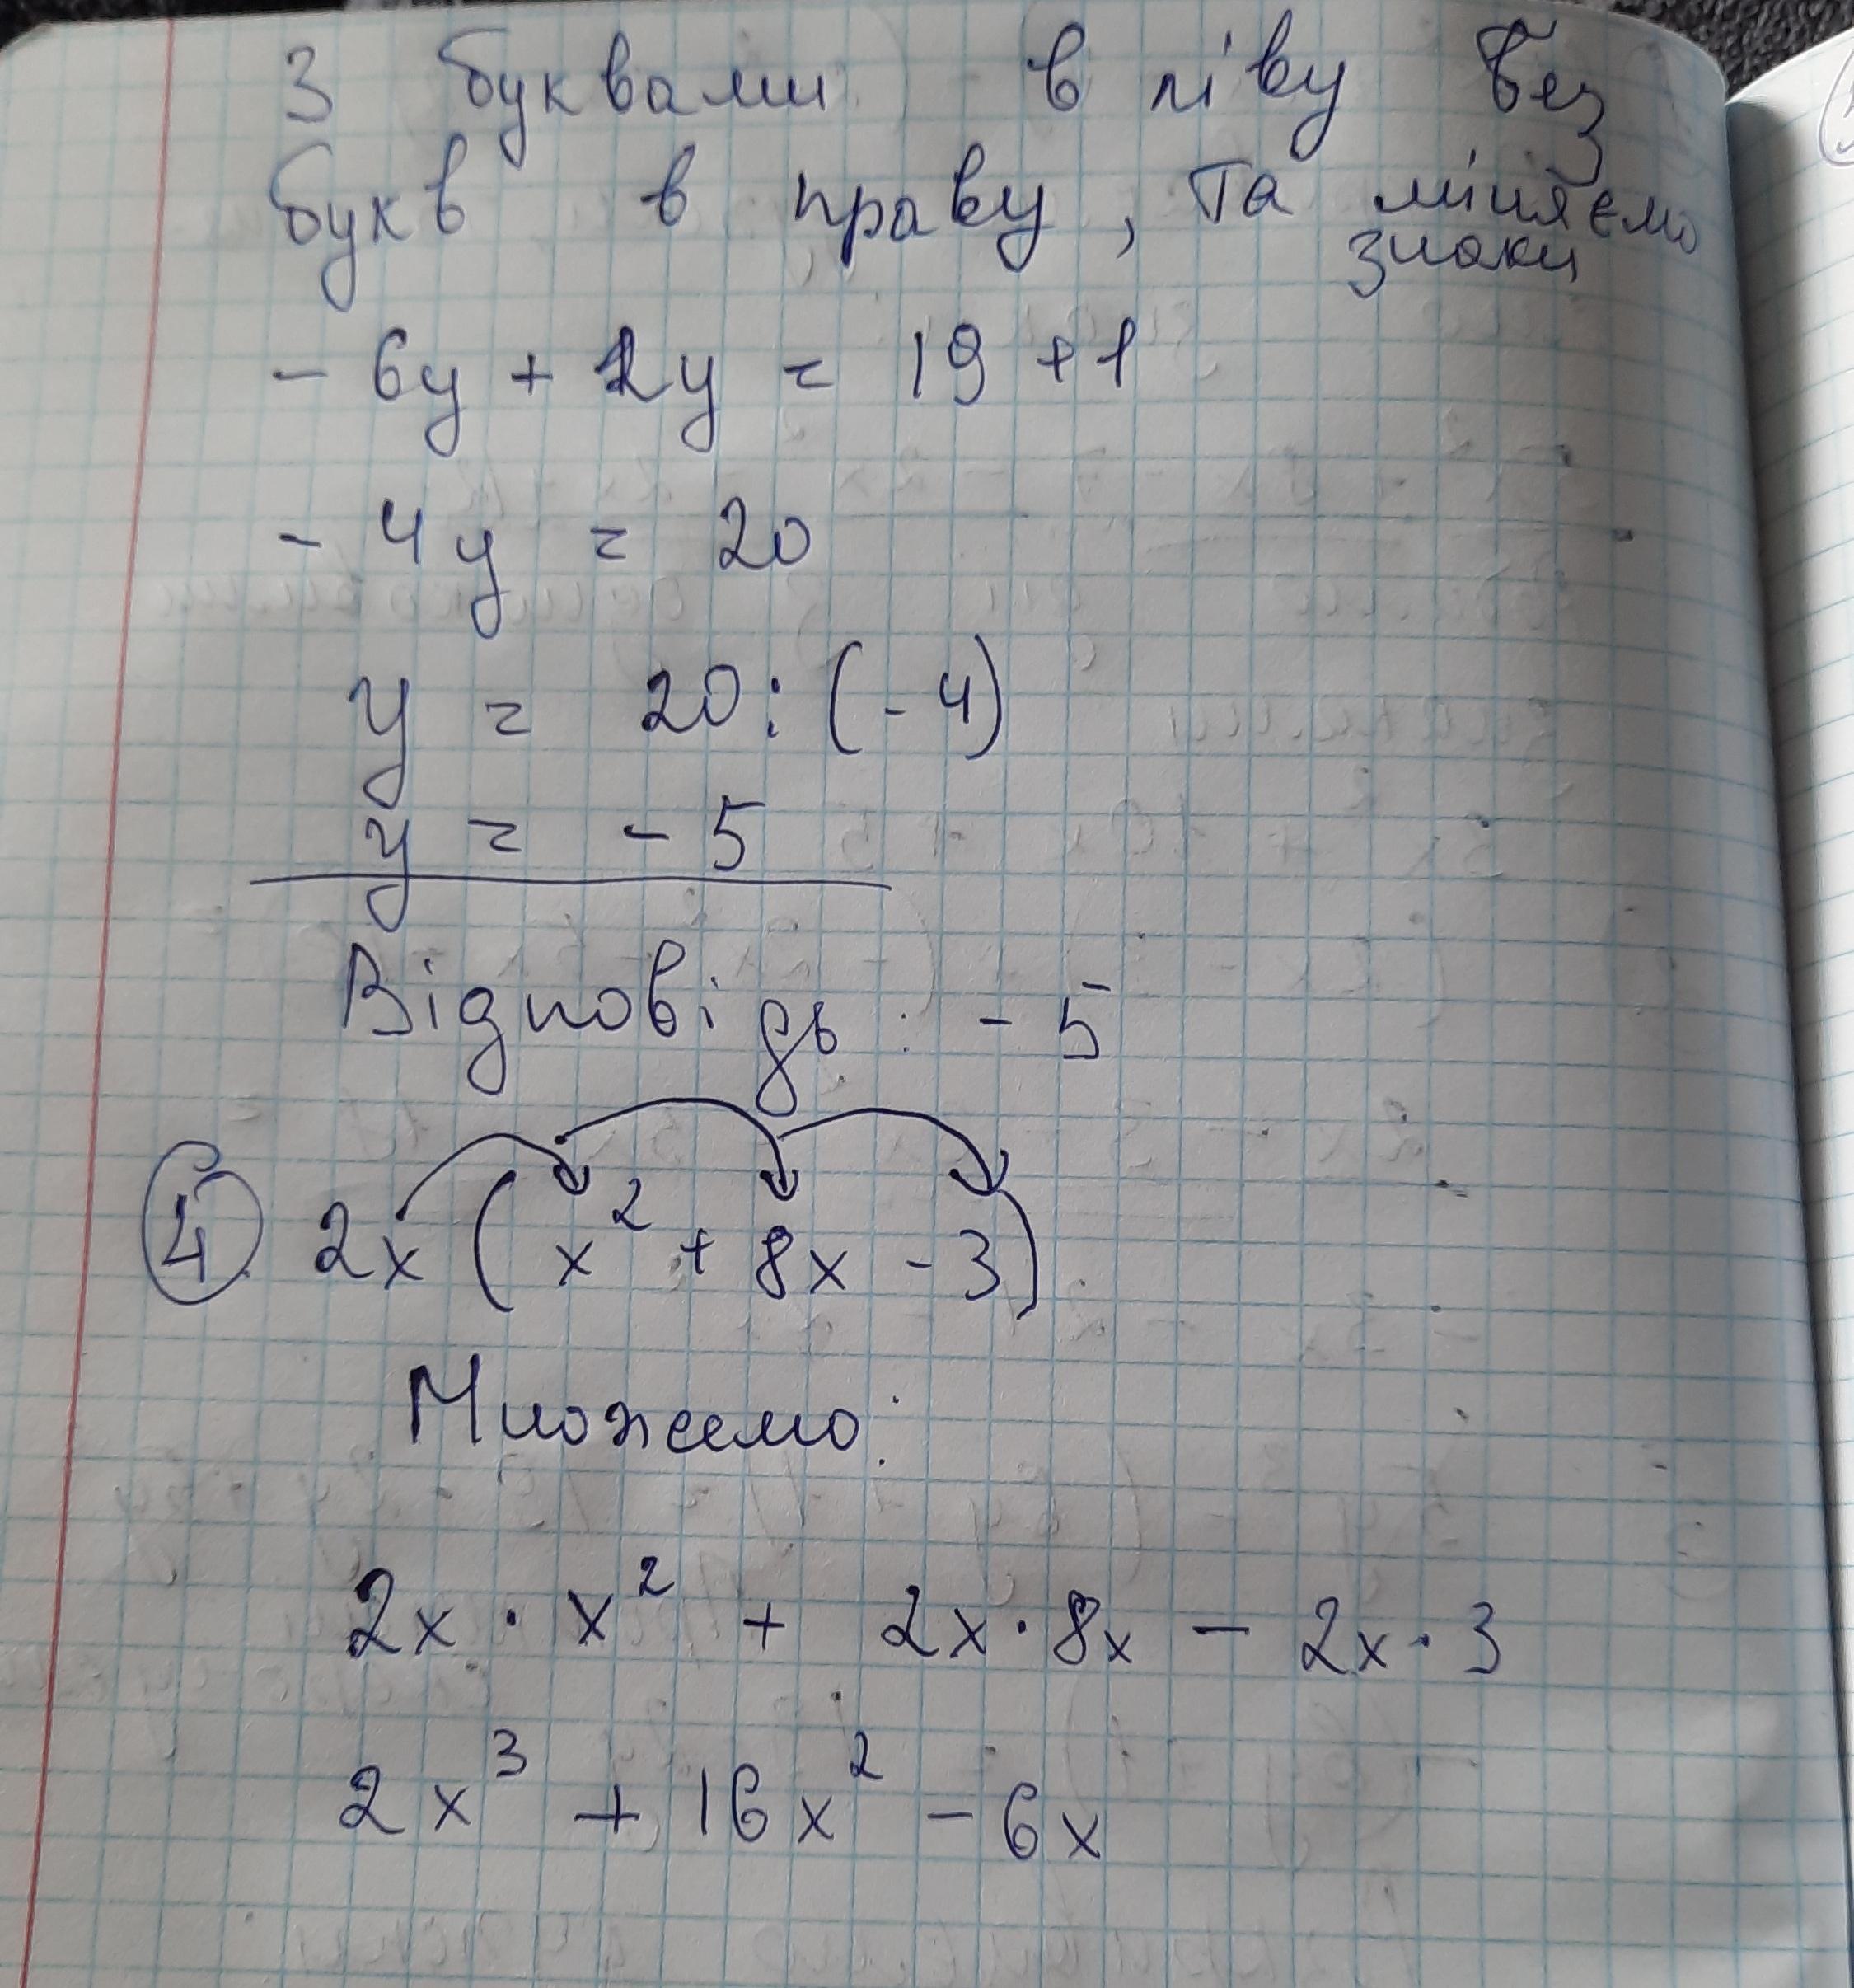 З буквами в ліву без
букв в праву, та міняємо
знаки
- 6y + 2y = 19 + 1
- 4y = 20
y = 20 : (-4)
y = - 5
Відповідь : - 5
4. 2x ( x² + 8x - 3)
Множемо:
2x · x² + 2x · 8x - 2x · 3
2x³ + 16x² - 6x